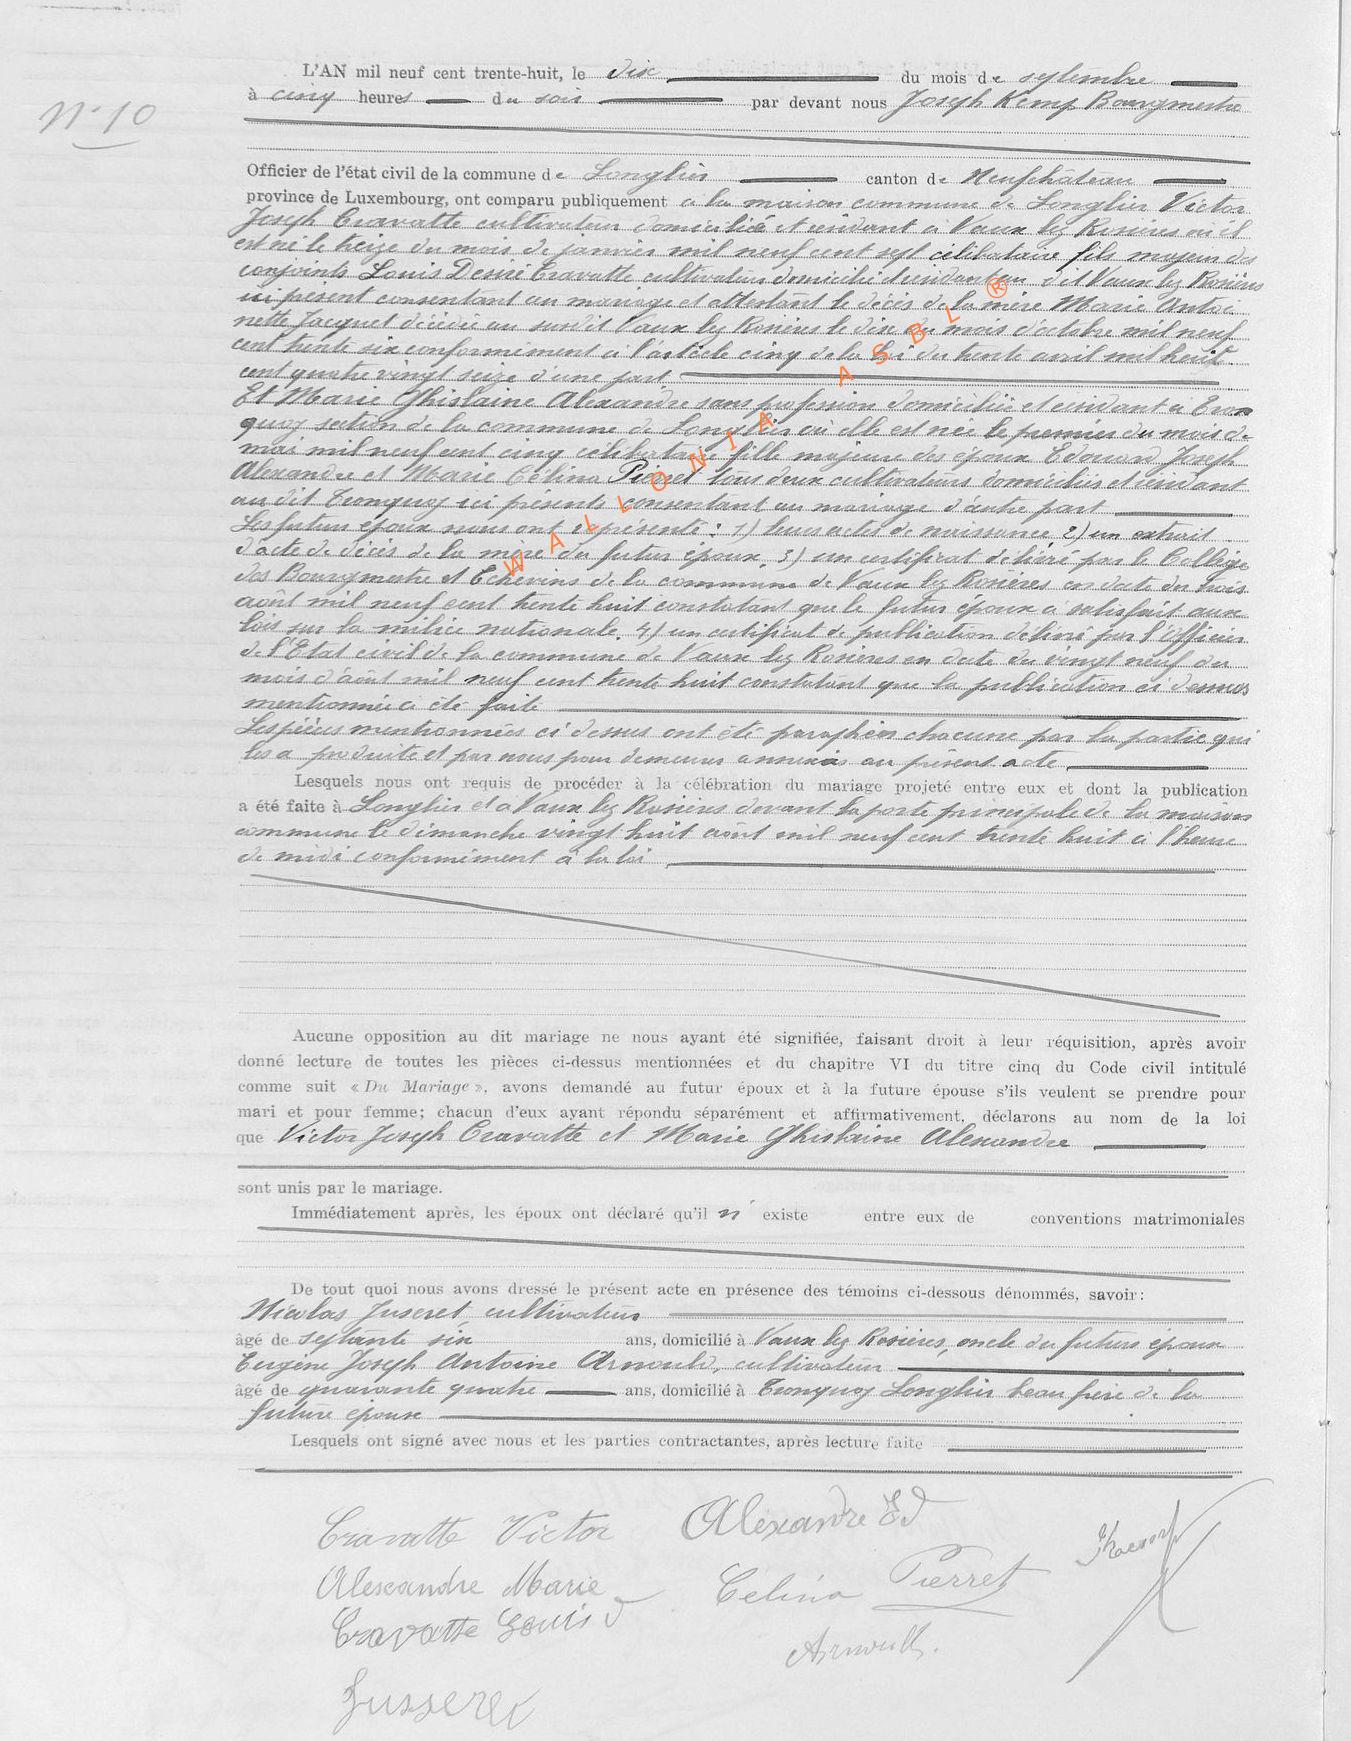 N° 10
L'AN mil neuf cent trente-huit, le dix du mois de septembre
à cinq heures du soir par devant nous Joseph Kemp Bourgmestre
Officier de l'état civil de la commune de Longlier canton de Neufchâteau
province de Luxembourg, ont comparu publiquement à la maison commune de Longlier Victor
Joseph Cravatte cultivateur domicilié et résidant à Vaux lez Rosières où il
est né le treize du mois de janvier mil neuf cent sept célibataire fils majeur des
conjoints Louis Désiré Cravatte cultivateur domicilié et résidant au dit Vaux lez Rosières
ici présent consentant au mariage et attestant le décès de la mère Marie Antoi
nette Jacquet décédée au susdit Vaux lez Rosières le dix du mois d'octobre mil neuf
cent trente six conformément à l'article cinq de la loi du trente avril mil huit
cent quatre vingt seize d'une part
Et Marie Ghislaine Alexandre sans profession domiciliée et résidant à Tron
quoy section de la commune de Longlier où elle est née le premier du mois de
mai mil neuf cent cinq célibataire fille majeure des époux Edouard Joseph
Alexandre et Marie Célina Pierret tous deux cultivateurs domiciliés et résidant
au dit Tronquoy ici présents consentant au mariage d'autre part
Les futurs époux nous ont représenté : 1) leurs actes de naissance, 2) un extrait
d'acte de décès de la mère du futur époux, 3) un certificat délivré par le Collège
des Bourgmestre et Echevins de la commune de Vaux lez Rosières en date du trois
août mil neuf cent trente huit constatant que le futur époux a satisfait aux
lois sur la milice nationale, 4) un certificat de publication délivré par l'Officier
de l'Etat civil de la commune de Vaux lez Rosières en date du vingt neuf du
mois d'août mil neuf cent trente huit constatant que la publication ci dessus
mentionnée a été faite
Les pièces mentionnées ci dessus ont été paraphées chacune par la partie qui
les a produite et par nous pour demeurer annexées au présent acte
Lesquels nous ont requis de procéder à la célébration du mariage projeté entre eux et dont la publication
a été faite à Longlier et à Vaux lez Rosières devant la porte principale de la maison
commune le dimanche vingt huit août mil neuf cent trente huit à l'heure
de midi conformément à la loi
Aucune opposition au dit mariage ne nous ayant été signifiée, faisant droit à leur réquisition, après avoir
donné lecture de toutes les pièces ci-dessus mentionnées et du chapitre VI du titre cinq du Code civil intitulé
comme suit « Du Mariage », avons demandé au futur époux et à la future épouse s'ils veulent se prendre pour
mari et pour femme; chacun d'eux ayant répondu séparément et affirmativement, déclarons au nom de la loi
que Victor Joseph Cravatte et Marie Ghislaine Alexandre
sont unis par le mariage.
Immédiatement après, les époux ont déclaré qu'il n' existe entre eux de conventions matrimoniales
De tout quoi nous avons dressé le présent acte en présence des témoins ci-dessous dénommés, savoir:
Nicolas Juseret, cultivateur
âgé de septante six ans, domicilié à Vaux lez Rosières, oncle du futurs époux
Eugène Joseph Antoine Arnould, cultivateur
âgé de quarante quatre ans, domicilié à Tronquoy Longlier beau frère de la
future épouse
Lesquels ont signé avec nous et les parties contractantes, après lecture faite
Cravatte Victor Alexandre Ed
Alexandre Marie Celina Pierret
Cravatte Louis D
Arnould.
Jusseret
WALLONIA ASBL ®